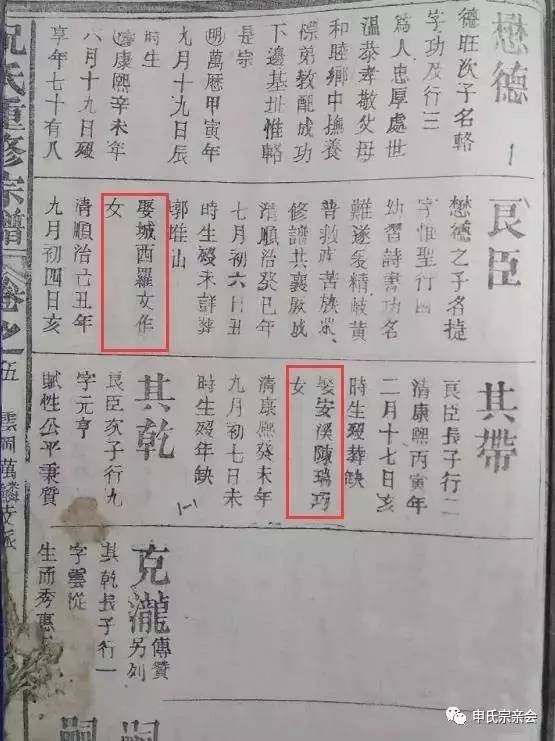 懋德
德旺次子名輅
字功及行三
為人忠厚處世
溫恭孝敬父母
和睦鄉中撫養
憐弟教配成功
下邊基址惟輅
是宗
明萬曆甲寅年
九月十九日辰
時生
康熙辛未年
八月十九日歿
享年七十有八
良臣
懋德之子名捷
字惟聖行四
幼習詩書功名
難遂爰精岐黃
普救疾苦族眾
修譜共襄厥成
清順治癸巳年
七月初六日丑
時生歿未詳葬
山
娶城西羅文作
女
清順治己丑年
九月初四日亥
其帶
良臣長子行二
清康熙丙寅年
二月十七日亥
時生歿葬缺
娶安溪陳瑞巧
女
清康熙癸未年
九月初七日未
時生歿年缺
其乾
良臣次子行九
字元亨
賦性公平秉質
克瀧
傳贊
另列
其乾長子行一
字雲從
生而秀惠
嗣
嗣
氏重修宗譜
卷之五
萬麟支派
申氏宗亲会